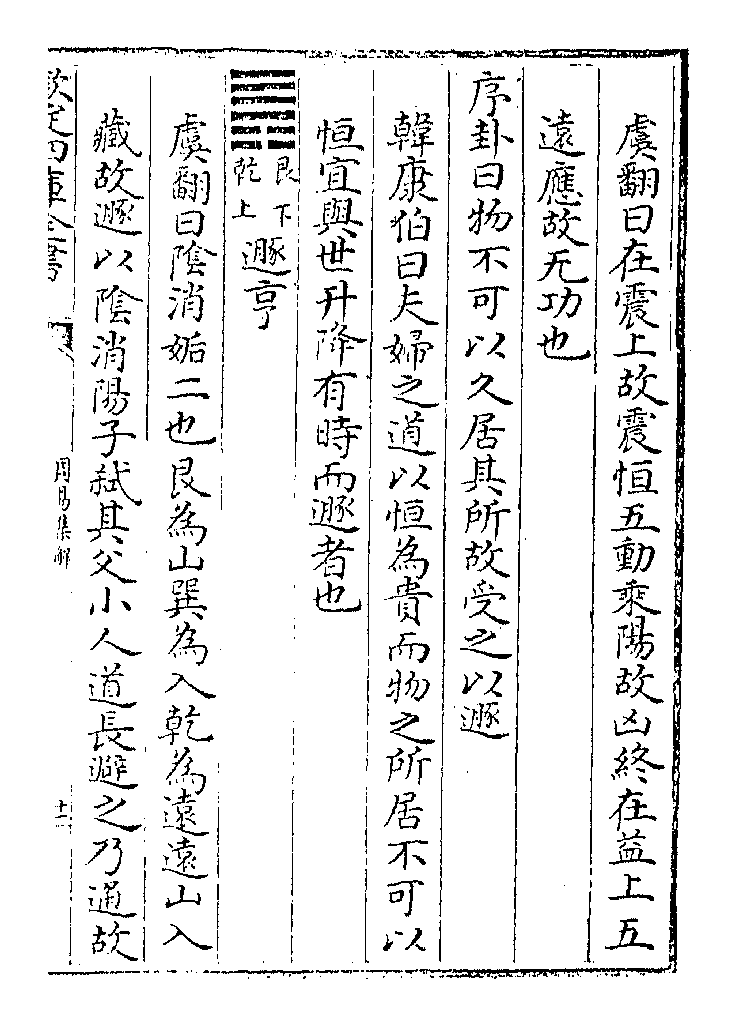 虞翻曰在震上故震恒五動乘陽故凶終在益上五
遠應故无功也
序卦曰物不可以久居其所故受之以遯
韓康伯曰夫婦之道以恒為貴而物之所居不可以
恒宜與世升降有時而遯者也
䷠艮下乾上遯亨
虞翻曰陰消姤二也艮為山巽為入乾為遠遠山入
藏故遯以陰消陽子弑其父小人道長避之乃通故
欽定四庫全書
周易集解
十二